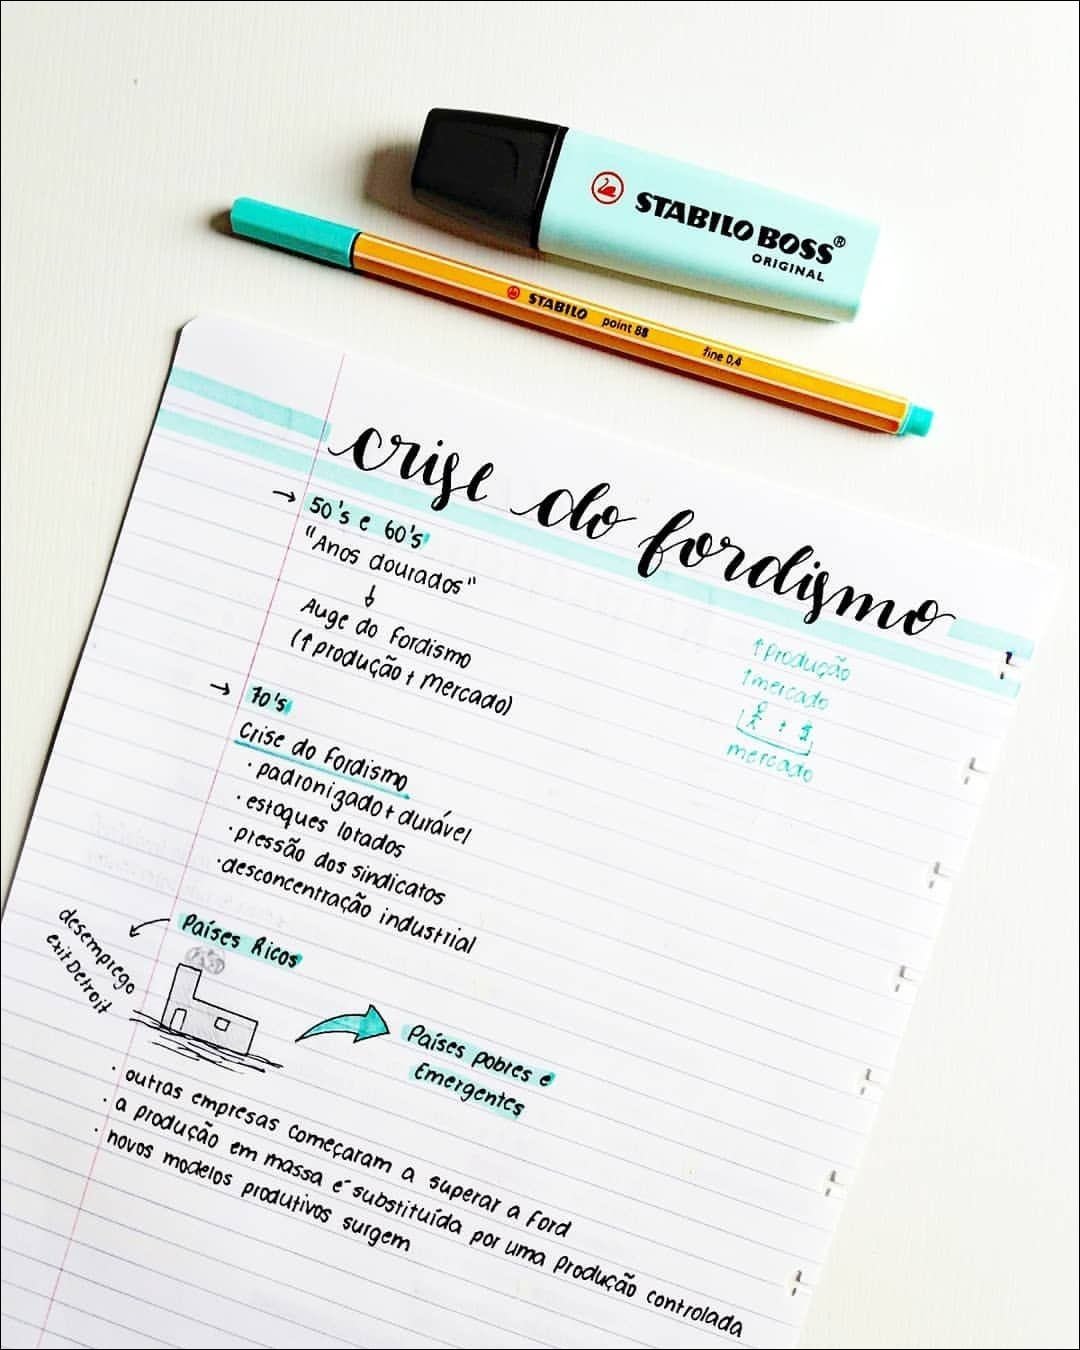 STABILO BOSS®
ORIGINAL
STABILO point 88 fine 0,4
crise do fordismo
→ 50's e 60's
"Anos dourados"
↓
Auge do Fordismo
(↑produção + mercado)
↑produção
↑mercado
+
mercado
→ 70's
Crise do Fordismo
· padronizado + durável
· estoques lotados
· pressão dos sindicatos
· desconcentração industrial
Países Ricos
desemprego
exit Detroit
Países pobres e
Emergentes
· outras empresas começaram a superar a Ford
· a produção em massa é substituída por uma produção controlada
· novos modelos produtivos surgem